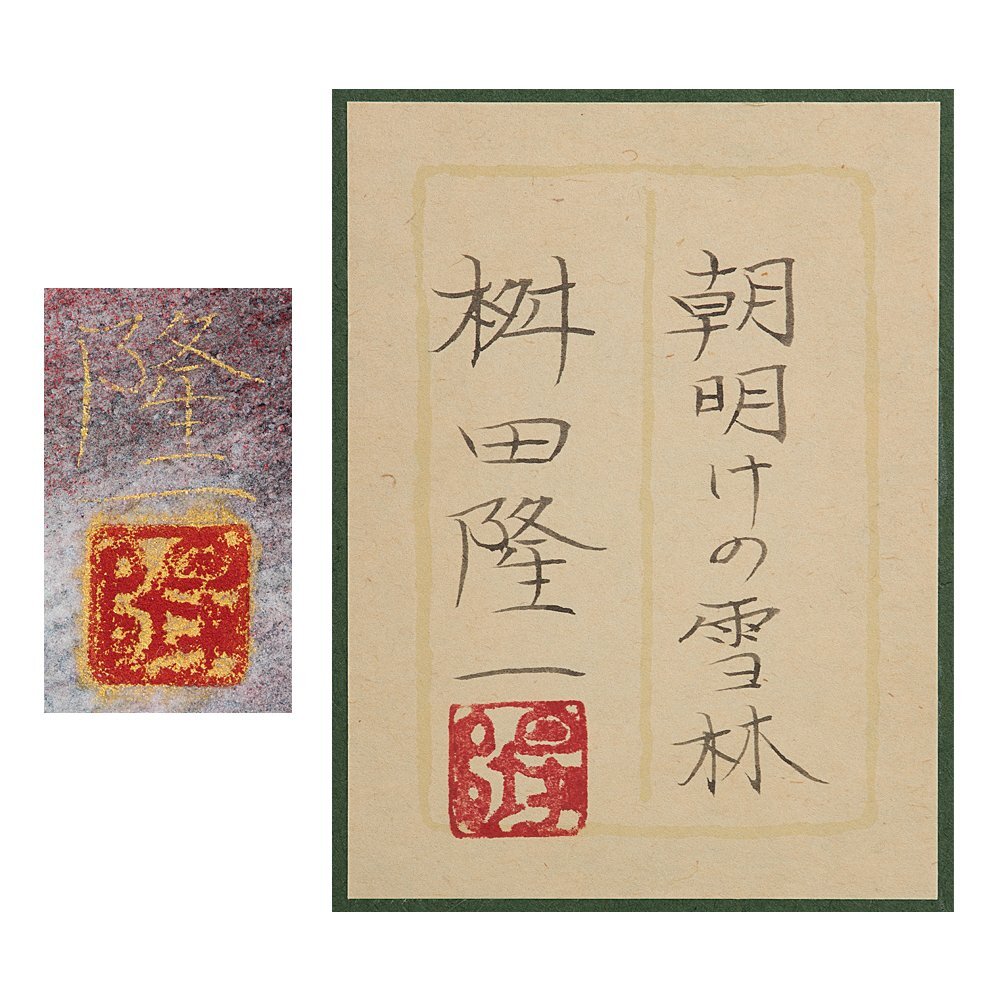 隆一
隆
朝明けの雪林
桝田隆一
隆